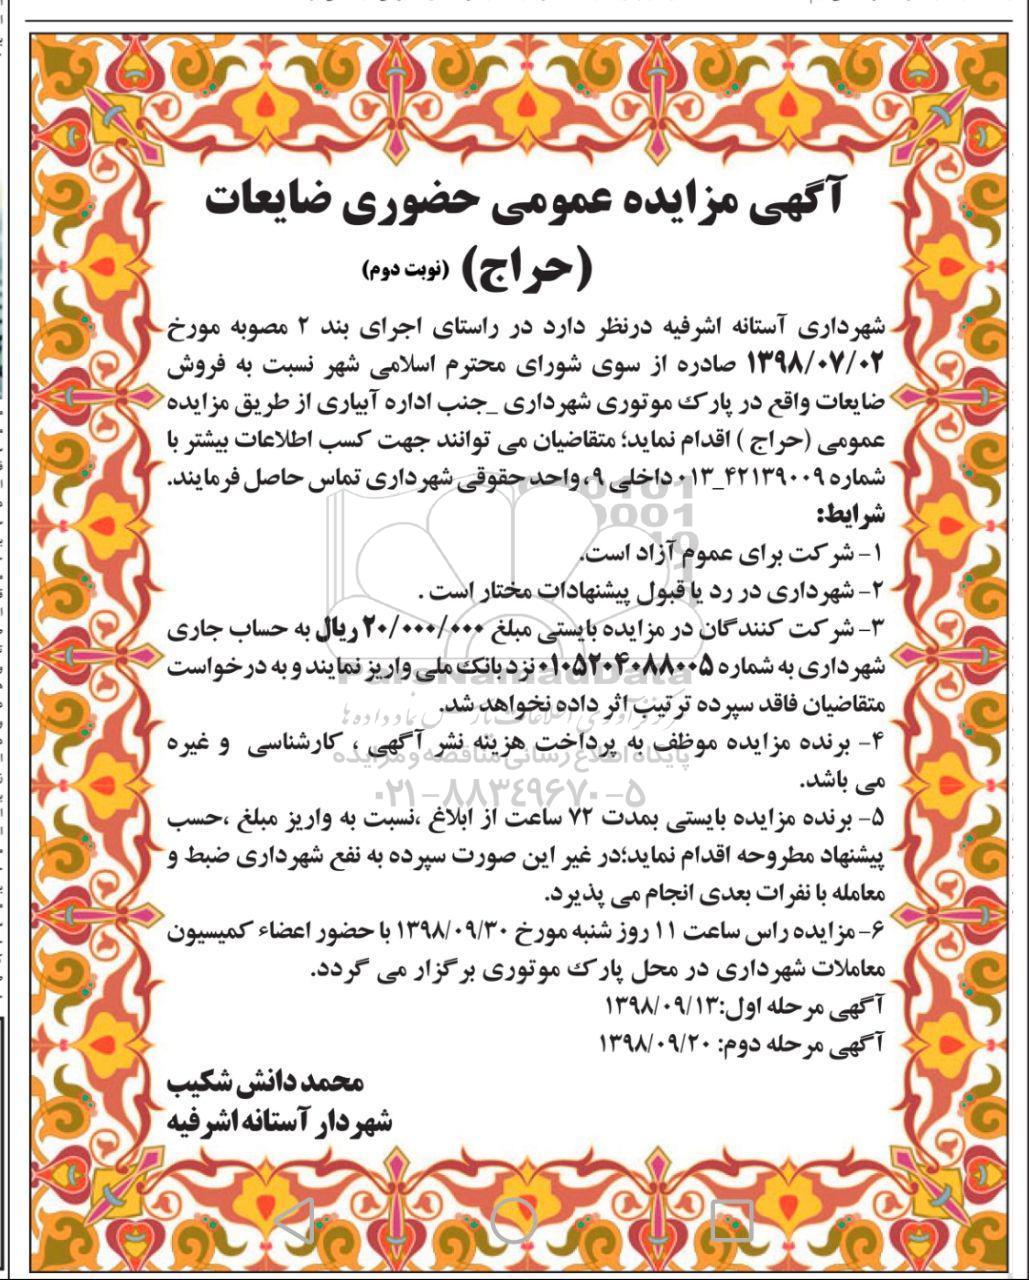 آگهی مزایده عمومی حضوری ضایعات
(حراج) (نوبت دوم)
شهرداری آستانه اشرفیه درنظر دارد در راستای اجرای بند ۲ مصوبه مورخ
۱۳۹۸/۰۷/۰۲ صادره از سوی شورای محترم اسلامی شهر نسبت به فروش
ضایعات واقع در پارک موتوری شهرداری _جنب اداره آبیاری از طریق مزایده
عمومی (حراج ) اقدام نماید؛ متقاضیان می توانند جهت کسب اطلاعات بیشتر با
شماره ۴۲۱۳۹۰۰۹_۰۱۳ داخلی ۹، واحد حقوقی شهرداری تماس حاصل فرمایند.
شرایط:
۱- شرکت برای عموم آزاد است.
۲- شهرداری در رد یا قبول پیشنهادات مختار است .
۳- شرکت کنندگان در مزایده بایستی مبلغ ۲۰/۰۰۰/۰۰۰ ریال به حساب جاری
شهرداری به شماره ۰۱۰۵۲۰۴۰۸۸۰۰۵ نزد بانک ملی واریز نمایند و به درخواست
متقاضیان فاقد سپرده ترتیب اثر داده نخواهد شد.
۴- برنده مزایده موظف به پرداخت هزینه نشر آگهی ، کارشناسی و غیره
می باشد.
۵- برنده مزایده بایستی بمدت ۷۲ ساعت از ابلاغ ،نسبت به واریز مبلغ ،حسب
پیشنهاد مطروحه اقدام نماید؛در غیر این صورت سپرده به نفع شهرداری ضبط و
معامله با نفرات بعدی انجام می پذیرد.
۶- مزایده راس ساعت ۱۱ روز شنبه مورخ ۱۳۹۸/۰۹/۳۰ با حضور اعضاء کمیسیون
معاملات شهرداری در محل پارک موتوری برگزار می گردد.
آگهی مرحله اول:۱۳۹۸/۰۹/۱۳
آگهی مرحله دوم: ۱۳۹۸/۰۹/۲۰
محمد دانش شکیب
شهردار آستانه اشرفیه
ParsNamadData
پایگاه اطلاع رسانی مناقصه و مزایده
۰۲۱-۸۸۳۴۹۶۷۰-۵